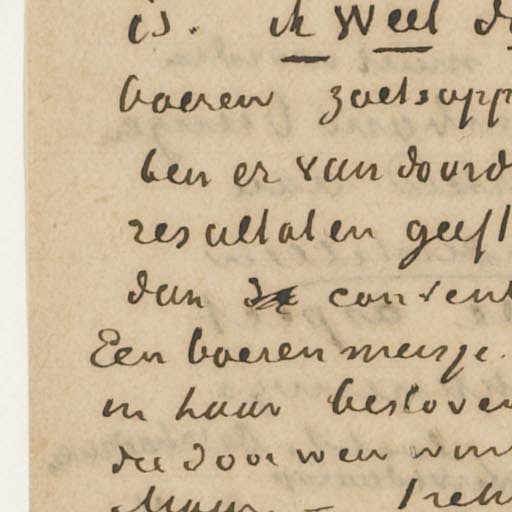 is. ik weet d
boeren zoetsapp
ben er van doord
resultaten geeft
dan de convent
Een boeren meisje.
in haar bestoven
die door weer win